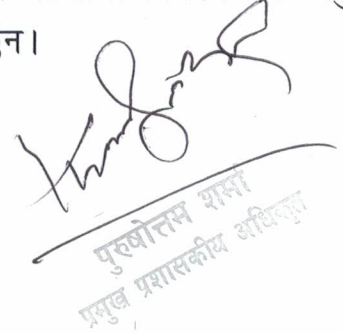 न।
पुरुषोत्तम शर्मा
प्रमुख प्रशासकीय अधिकृत